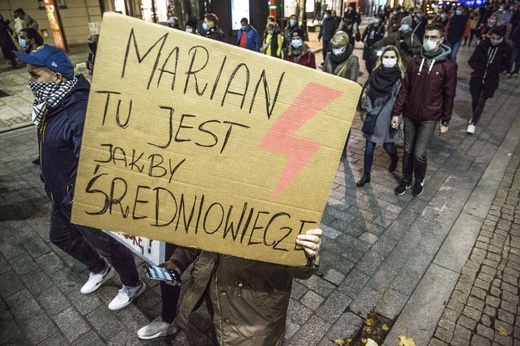 MARIAN
TU JEST
JAKBY
ŚREDNIOWIECZE